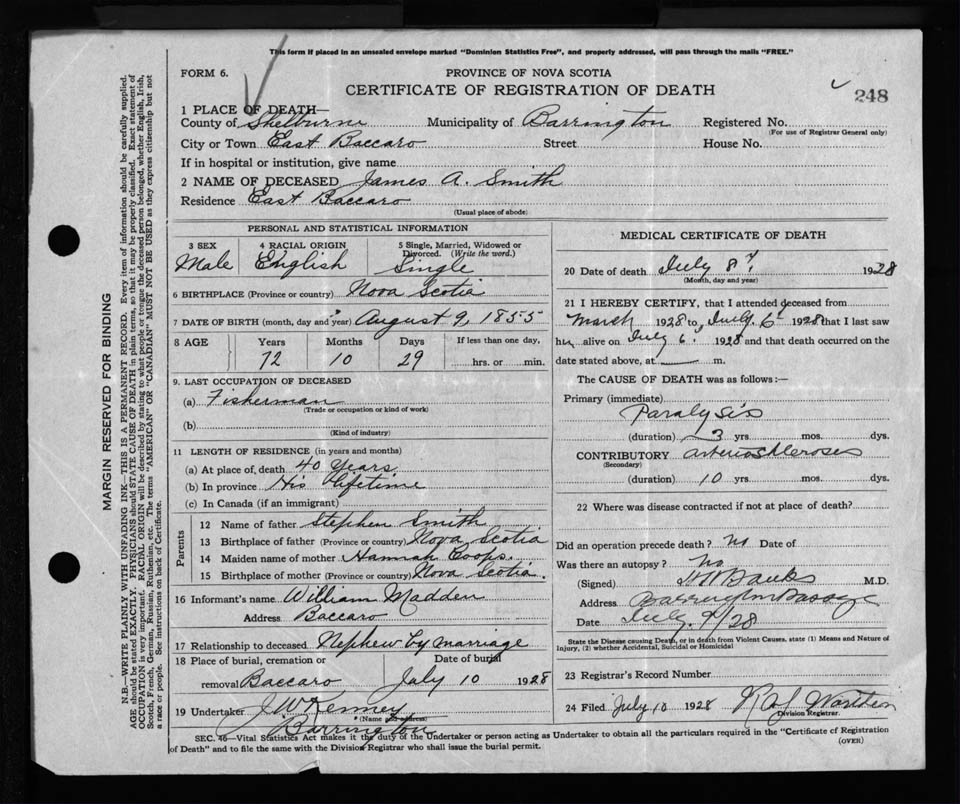 This form if placed in an unsealed envelope marked "Dominion Statistics Free", and properly addressed, will pass through the mails "FREE."
FORM 6.
PROVINCE OF NOVA SCOTIA
CERTIFICATE OF REGISTRATION OF DEATH
248
1 PLACE OF DEATH—
County of Shelburne Municipality of Barrington Registered No.
(For use of Registrar General only)
City or Town East Baccaro Street House No.
If in hospital or institution, give name
2 NAME OF DECEASED James A. Smith
Residence East Baccaro
(Usual place of abode)
PERSONAL AND STATISTICAL INFORMATION
3 SEX 4 RACIAL ORIGIN 5 Single, Married, Widowed or Divorced. (Write the word.)
Male English Single
6 BIRTHPLACE (Province or country) Nova Scotia
7 DATE OF BIRTH (month, day and year) August 9, 1855
8 AGE Years Months Days If less than one day,
72 10 29 hrs. or min.
9. LAST OCCUPATION OF DECEASED
(a) Fisherman
(Trade or occupation or kind of work)
(b)
(Kind of industry)
11 LENGTH OF RESIDENCE (in years and months)
(a) At place of death 40 Years
(b) In province His lifetime
(c) In Canada (if an immigrant)
Parents
12 Name of father Stephen Smith
13 Birthplace of father (Province or country) Nova Scotia
14 Maiden name of mother Hannah Coops.
15 Birthplace of mother (Province or country) Nova Scotia.
16 Informant's name William Madden
Address Baccaro
17 Relationship to deceased Nephew by marriage
18 Place of burial, cremation or Date of burial
removal Baccaro July 10 1928
19 Undertaker J W Kenney
(Name and address)
Barrington
MEDICAL CERTIFICATE OF DEATH
20 Date of death July 8th, 1928
(Month, day and year)
21 I HEREBY CERTIFY, that I attended deceased from
March 1928 to July. 6 1928 that I last saw
him alive on July 6. 1928 and that death occurred on the
date stated above, at m.
The CAUSE OF DEATH was as follows:—
Primary (immediate)
Paralysis
(duration) 3 yrs. mos. dys.
CONTRIBUTORY arterioscleroses
(Secondary)
(duration) 10 yrs. mos. dys.
22 Where was disease contracted if not at place of death?
Did an operation precede death? no Date of
Was there an autopsy? no
(Signed) Banks M.D.
Address Barrington Passage
Date July. 9/28
State the Disease causing Death, or in death from Violent Causes, state (1) Means and Nature of
Injury, (2) whether Accidental, Suicidal or Homicidal
23 Registrar's Record Number
24 Filed July 10 1928
Division Registrar.
SEC. 46—Vital Statistics Act makes it the duty of the Undertaker or person acting as Undertaker to obtain all the particulars required in the "Certificate of Registration
of Death" and to file the same with the Division Registrar who shall issue the burial permit.
(OVER)
MARGIN RESERVED FOR BINDING
N.B.—WRITE PLAINLY WITH UNFADING INK—THIS IS A PERMANENT RECORD. Every item of information should be carefully supplied.
AGE should be stated EXACTLY. PHYSICIANS should STATE CAUSE OF DEATH in plain terms, so that it may be properly classified. Exact statement of
OCCUPATION is very important. RACIAL ORIGIN will be described by stating to what people or tongue the deceased person belonged, whether English, Irish,
Scotch, French, German, Russian, Ruthenian, etc. The terms "AMERICAN" or "CANADIAN" MUST NOT BE USED as they express citizenship but not
a race or people. See instructions on back of Certificate.